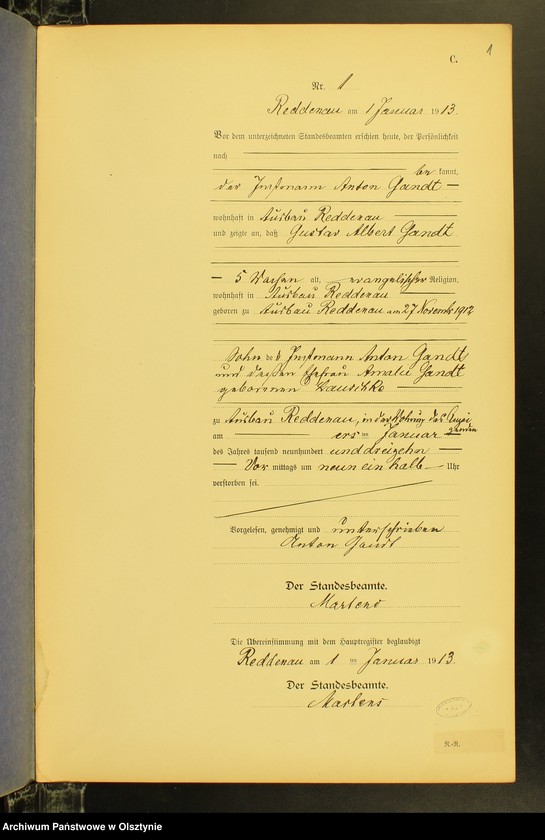 1
C.
Nr. 1
Reddenau am 1 Januar 1913.
Vor dem unterzeichneten Standesbeamten erschien heute, der Persönlichkeit
nach
be kannt,
der Instmann Anton Gandt
wohnhaft in Ausbau Reddenau
und zeigte an, daß Gustav Albert Gandt
5 Wochen alt, evangelischer Religion,
wohnhaft in Ausbau Reddenau
geboren zu Ausbau Reddenau am 27 Novemb 1912
Sohn des Instmann Anton Gandt
und dessen Ehefrau Amalie Gandt
geborenen
zu Ausbau Reddenau, in der Wohnung des Anzei
genden
am ersten Januar
des Jahres tausend neunhundert und dreizehn
Vor mittags um neun ein halb Uhr
verstorben sei.
Vorgelesen, genehmigt und unterschrieben
Anton Gandt
Der Standesbeamte.
Martens
Die Übereinstimmung mit dem Hauptregister beglaubigt
Reddenau am 1 ten Januar 1913.
Der Standesbeamte.
Martens
R.-R.
Archiwum Państwowe w Olsztynie